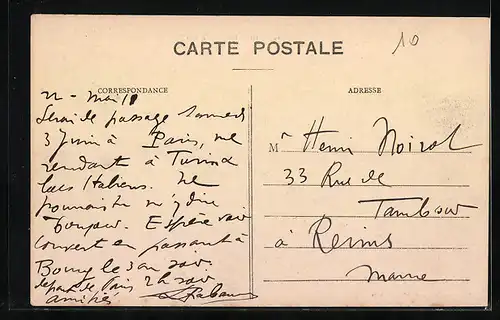 10
CARTE POSTALE
CORRESPONDANCE
22 - Mai 11
Serai de passage Samedi
3 Juin à Paris, me
rendant à Turin &
lacs Italiens. Ne
pourrais tu y dire
bonjour. Espère
couvert en passant à
Bourg le 3 au soir
de Paris 2 h soir
amitiés
ADRESSE
Mr Henri Noirot
33 Rue de
Tambour
à Reims
Marne